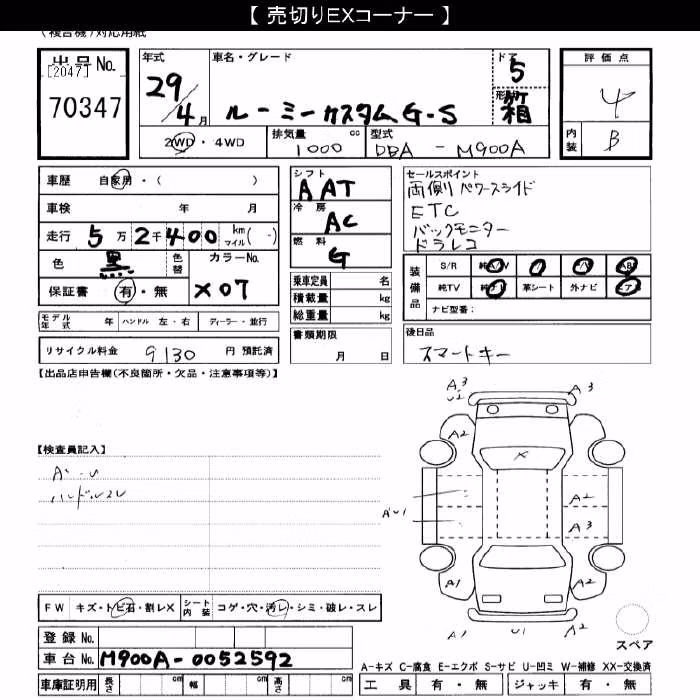 【 売切りEXコーナー 】
(複合機)対応用紙
出品No.
[2047]
70347
年式
29/4月
車名・グレード
ルーミーカスタムG-S
ドア
5
形状
箱
評価点
4
内装
B
2WD・4WD
排気量
1000 cc
型式
DBA - M900A
車歴 自家用・( )
車検 年 月
走行 5万2千400 km マイル( - )
色 黒 色替 カラーNo.
保証書 有・無 X07
モデル年式 年 ハンドル 左・右 ディーラー・並行
リサイクル料金 9130 円 預託済
シフト
AAT
冷房
AC
燃料
G
乗車定員 名
積載量 kg
総重量 kg
書類期限
月 日
セールスポイント
両側パワースライド
ETC
バックモニター
ドラレコ
装備品
S/R 純A/W P/S P/W AB
純TV 純ナビ 革シート 外ナビ エアコン
ナビ型番:
後日品
スマートキー
【出品店申告欄(不良箇所・欠品・注意事項等)】
【検査員記入】
A・U
ハンドル
A3 U2
A3
A2
X
A2
AU1
A3
A1
A2
A1
U1
A2
スペア
FW キズ・トビ石・割レX シート内装 コゲ・穴・汚レ・シミ・破レ・スレ
登録No.
車台No. M900A-0052592
車庫証明用 長さ cm 幅 cm 高さ cm
A-キズ C-腐食 E-エクボ S-サビ U-凹ミ W-補修 XX-交換済
工具 有・無 ジャッキ 有・無